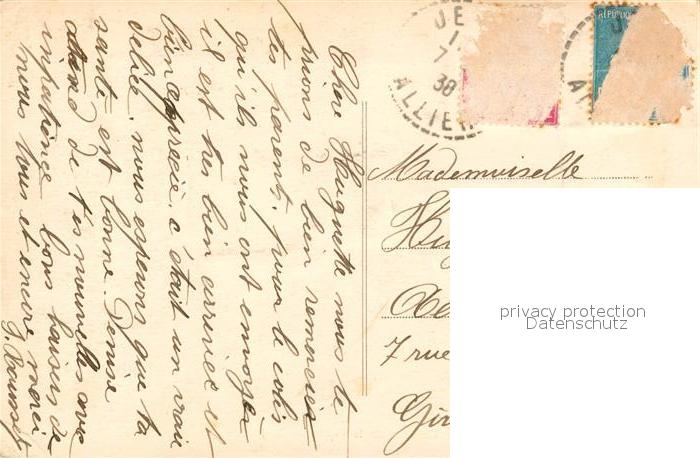 Chère Huguette nous te
prions de bien remercier
tes parents, pour le colis
qu'ils nous ont envoyer
il est très bien arrivée et
bien apprecié, c'était un vraie
delice, nous esperons que ta
santé est bonne. Denise
attend de tes nouvelles avec
inpatience bons baisers de
nous tous et encore merci
JE
1
7
38
ALLIER
REPUBLIQ
JE
Al
Mademoiselle
Hug
7 rue
Gir
privacy protection
Datenschutz